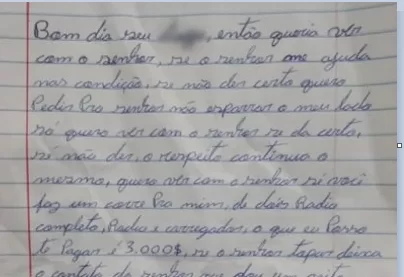 Bom dia seu , então queria ver
com o senhor, se o senhor me ajuda
nas condição, se não der certo quero
Pedir Pro senhor não esparrar o meu lado
só quero ver com o senhor se da certo,
si não der, o respeito continua o
mesmo, quero ver com o senhor si você
faz um corre Pra mim, de dois Radio
completo, Radio e carregador, o que eu Posso
te Pagar é 3.000$, se o senhor topar deixa
o contato do senhor que dou um jeito